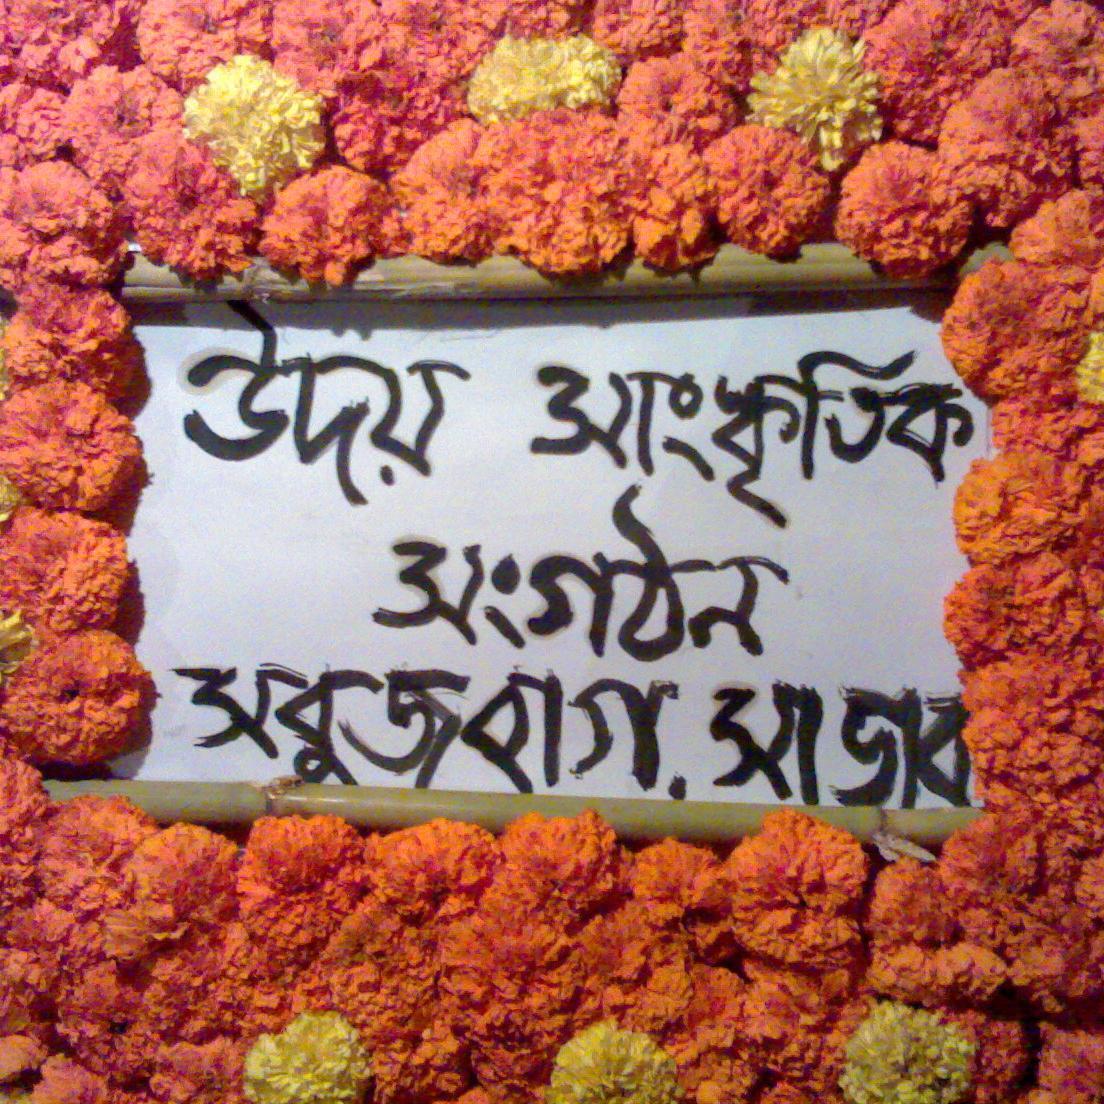 উদয় সাংস্কৃতিক
সংগঠন
সবুজবাগ. সাভার